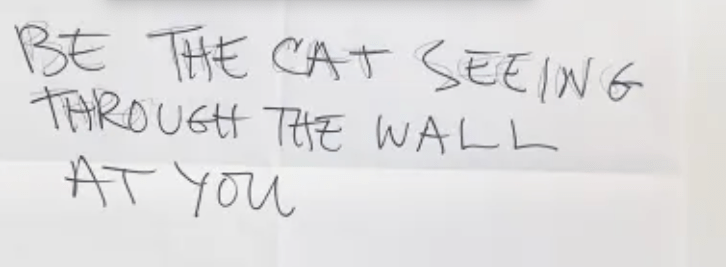 BE THE CAT SEEING
THROUGH THE WALL
AT YOU